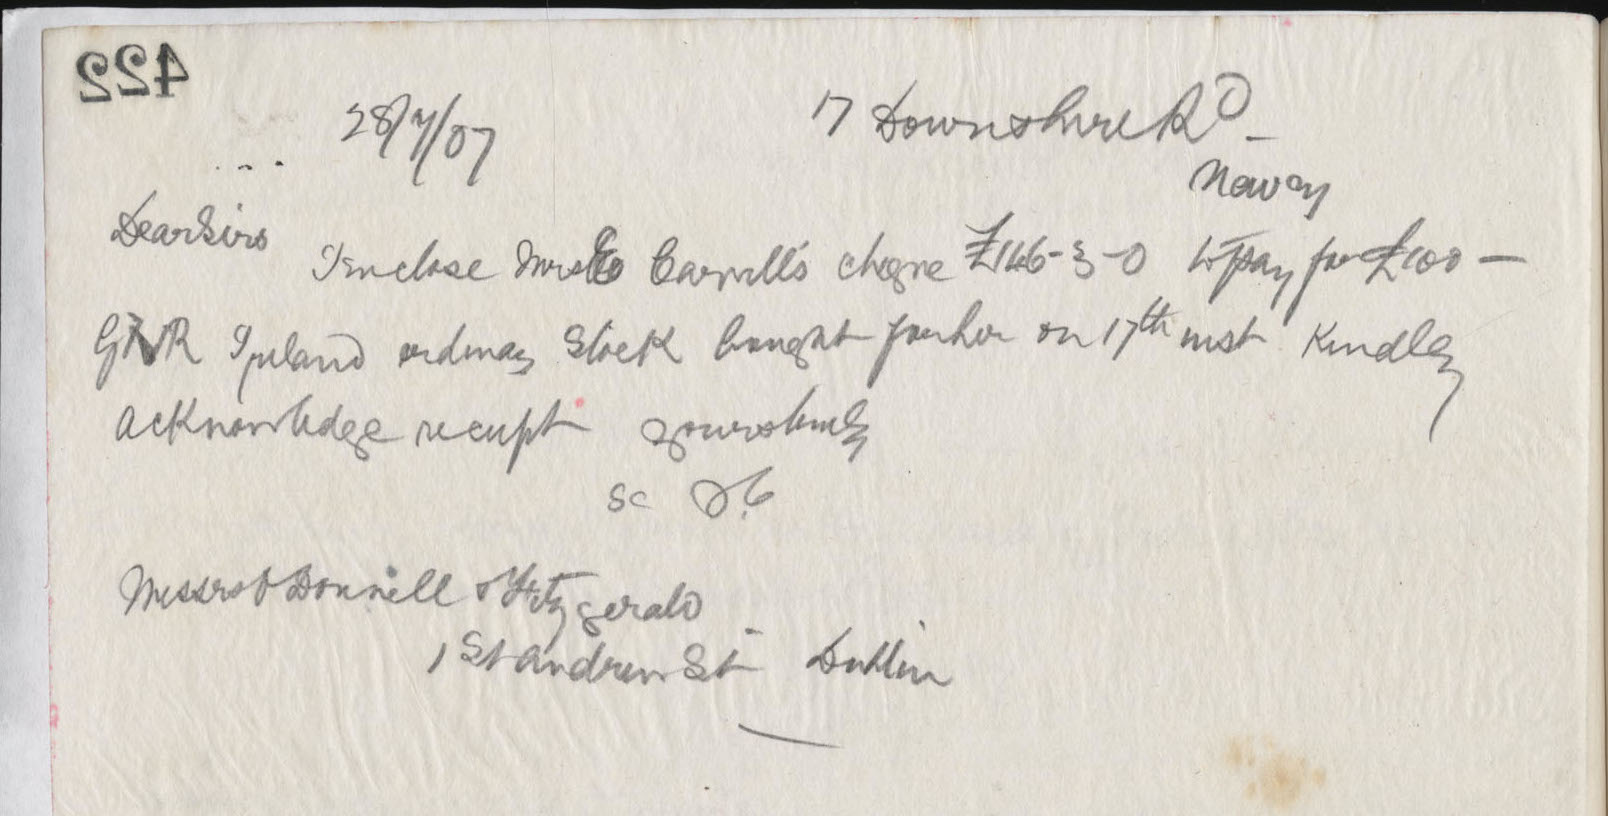 422
28/7/07 17 Downshire Rd
Newry
Dear Sirs
I enclose Mrs Carvill's cheque £146-3-0 to pay for £100 -
GNR Ireland ordinary Stock bought for her on 17th inst. Kindly
acknowledge receipt yours truly
Messrs O Donnell & Fitzgerald
1 St Andrew St Dublin